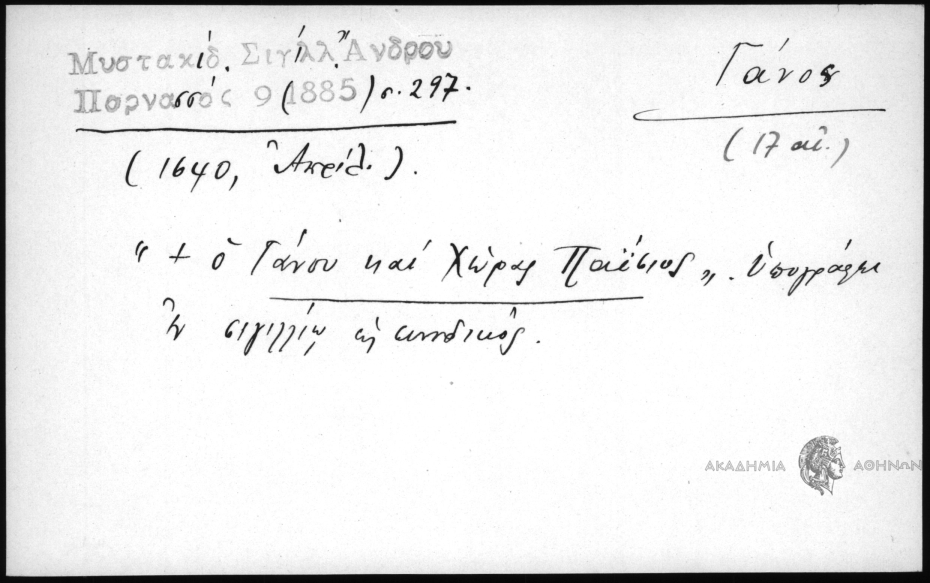 Μυστακίδ. Σιγίλλ. Ἄνδρου
Παρνασσός 9 (1885) σ. 297.
Γάνος
(17 αἰ.)
(1640, Ἀπρίλ.).
" + ὁ Γάνου καί Χώρας Παΐσιος ". Ὑπογράφει
ἐν σιγιλλίῳ ὡς συνοδικός.
ΑΚΑΔΗΜΙΑ ΑΘΗΝΩΝ